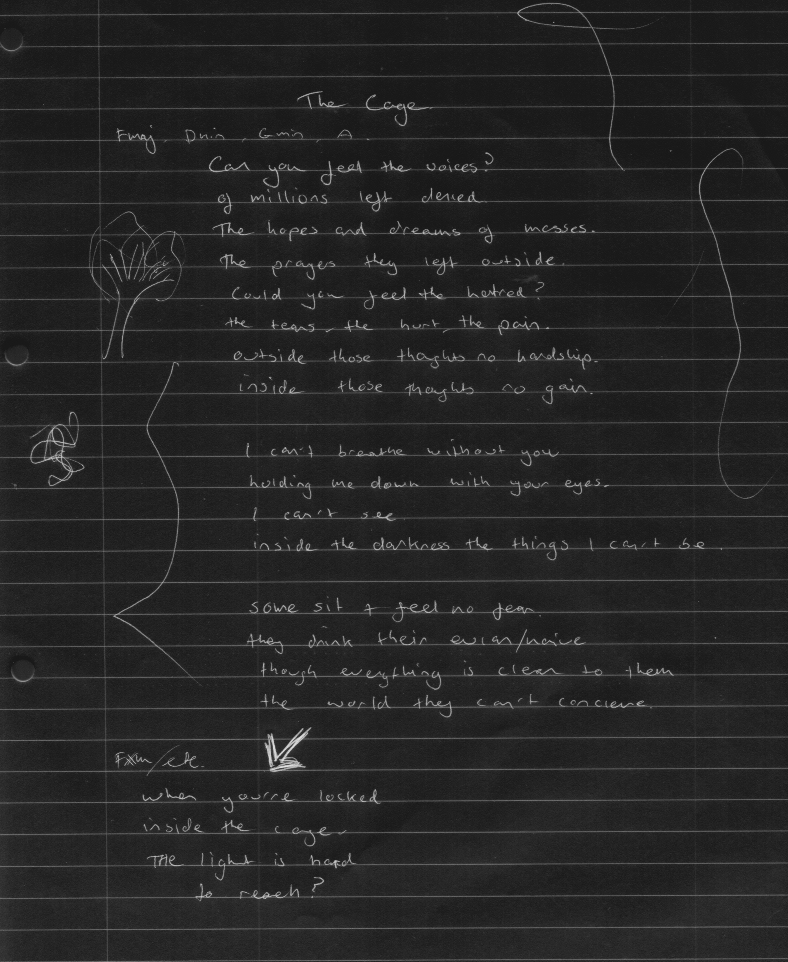 The Cage
Fmaj, Dmin, Gmin, A.
Can you feel the voices?
of millions left denied
The hopes and dreams of masses.
The prayers they left outside.
Could you feel the hatred?
the tears, the hurt, the pain.
outside those thoghts no hardship.
inside those thoghts no gain.
I can't breathe without you
holding me down with your eyes.
I can't see
inside the darkness the things I can't be.
some sit + feel no fear.
they drink their evian/naive
though everything is clear to them
the world they can't concieve.
/etc.
when you're locked
inside the cage
THe light is hard
to reach?